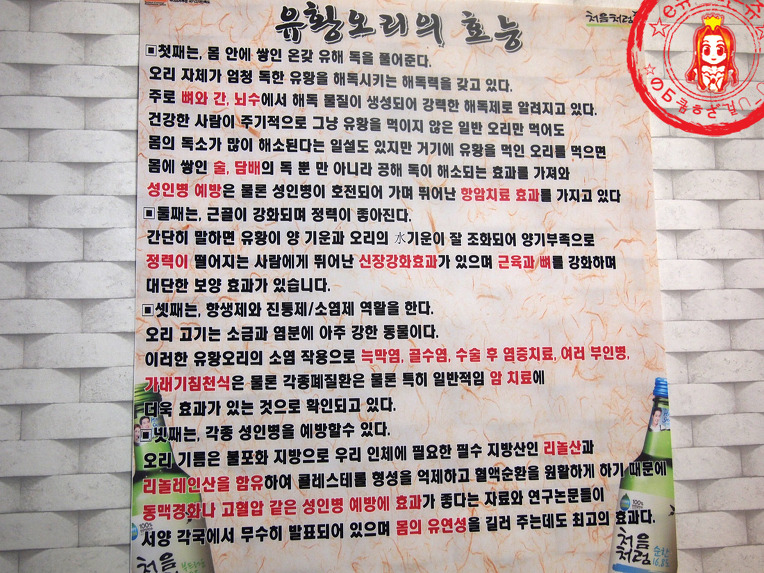 유황오리의 효능
처음처럼
▣첫째는, 몸 안에 쌓인 온갖 유해 독을 풀어준다.
오리 자체가 엄청 독한 유황을 해독시키는 해독력을 갖고 있다.
주로 뼈와 간, 뇌수에서 해독 물질이 생성되어 강력한 해독제로 알려지고 있다.
건강한 사람이 주기적으로 그냥 유황을 먹이지 않은 일반 오리만 먹어도
몸의 독소가 많이 해소된다는 일설도 있지만 거기에 유황을 먹인 오리를 먹으면
몸에 쌓인 술, 담배의 독 뿐 만 아니라 공해 독이 해소되는 효과를 가져와
성인병 예방은 물론 성인병이 호전되어 가며 뛰어난 항암치료 효과를 가지고 있다
▣둘째는, 근골이 강화되며 정력이 좋아진다.
간단히 말하면 유황이 양 기운과 오리의 水기운이 잘 조화되어 양기부족으로
정력이 떨어지는 사람에게 뛰어난 신장강화효과가 있으며 근육과 뼈를 강화하며
대단한 보양 효과가 있습니다.
▣셋째는, 항생제와 진통제/소염제 역할을 한다.
오리 고기는 소금과 염분에 아주 강한 동물이다.
이러한 유황오리의 소염 작용으로 늑막염, 골수염, 수술 후 염증치료, 여러 부인병,
가래기침천식은 물론 각종폐질환은 물론 특히 일반적임 암 치료에
더욱 효과가 있는 것으로 확인되고 있다.
▣넷째는, 각종 성인병을 예방할수 있다.
오리 기름은 불포화 지방으로 우리 인체에 필요한 필수 지방산인 리놀산과
리놀레인산을 함유하여 콜레스테롤 형성을 억제하고 혈액순환을 원활하게 하기 때문에
동맥경화나 고혈압 같은 성인병 예방에 효과가 좋다는 자료와 연구논문들이
서양 각국에서 무수히 발표되어 있으며 몸의 유연성을 길러 주는데도 최고의 효과다.
100%
처음
100%
처음
처럼
순한
16.8